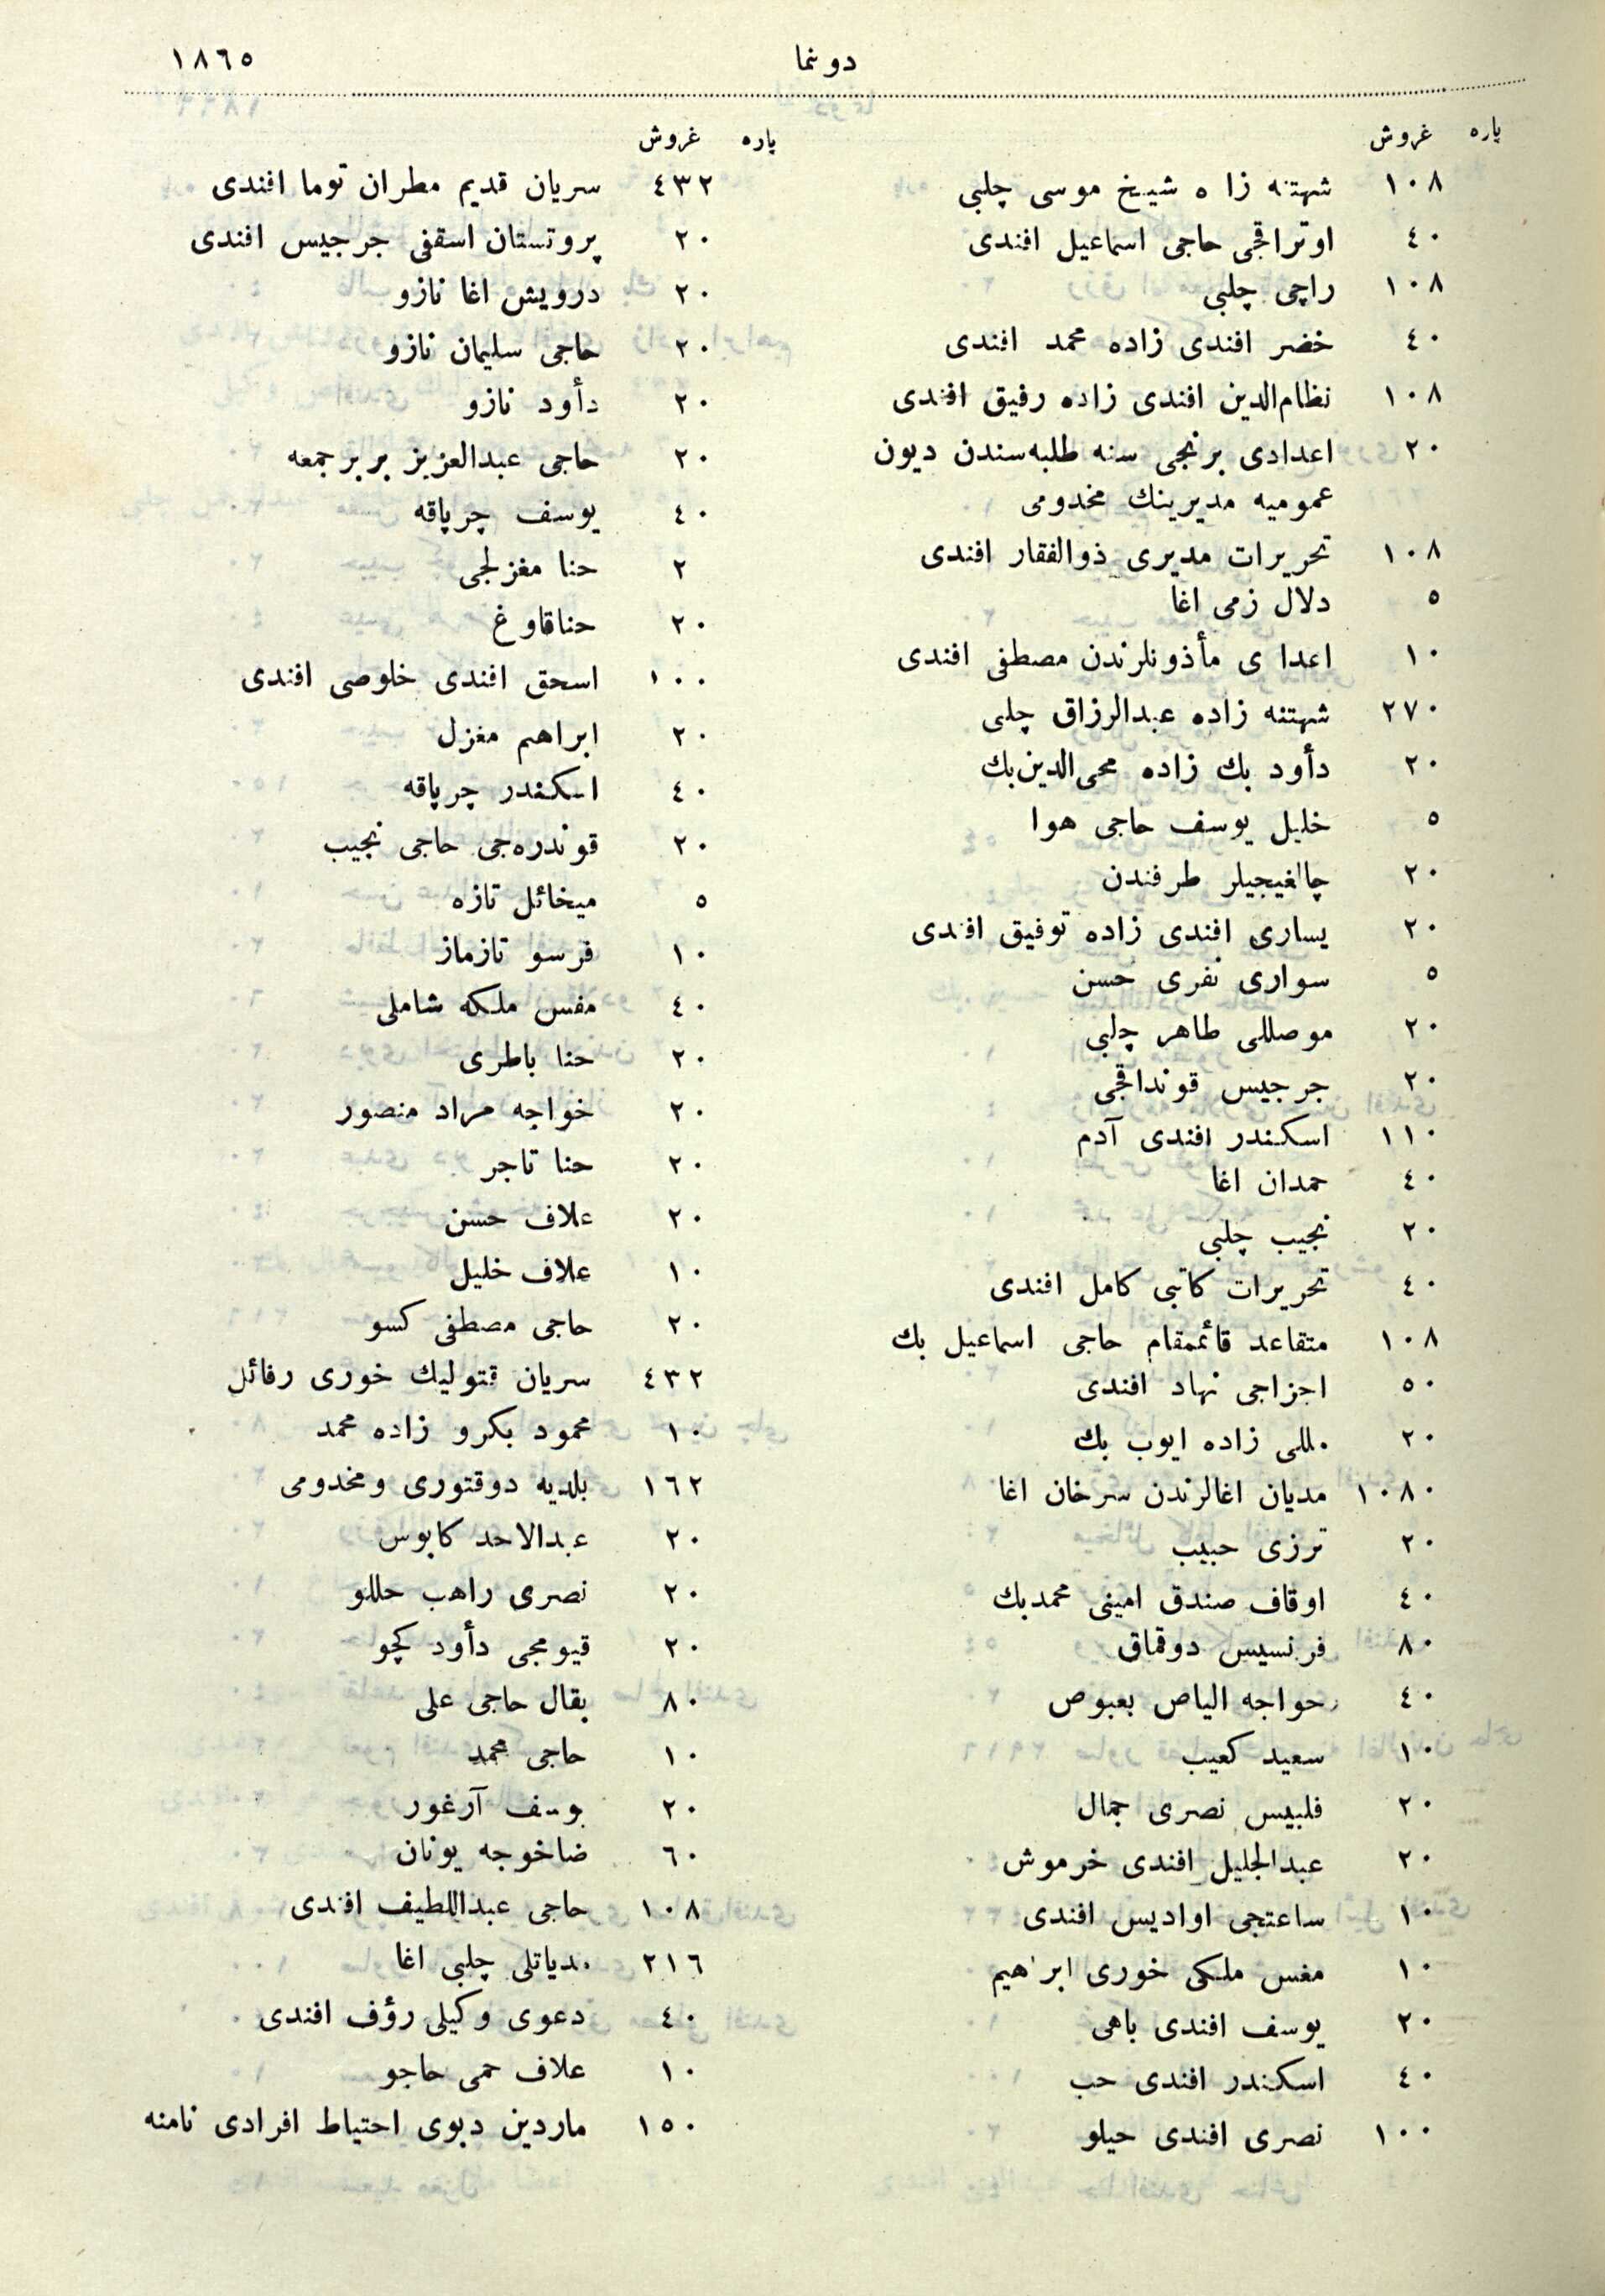 دوننما ١٨٦٥
پاره غروش
١٠٨ شهتنه زا ه شیخ موسی چلبی
٤٠ اوتراقجی حاجی اسماعیل افندی
١٠٨ راچی چلبی
٤٠ خضر افندی زاده محمد افندی
١٠٨ نظام‌الدین افندی زاده رفیق افندی
٢٠ اعدادی برنجی سنه طلبه‌سندن دیون
عمومیه مدیرینك مخدومی
١٠٨ تحریرات مدیری ذوالفقار افندی
٥ دلال زمی اغا
١٠ اعدا ی مأذونلرندن مصطفی افندی
٢٧٠ شهتنه زاده عبدالرزاق چلبی
٢٠ دأود بك زاده محی‌الدین‌بك
٥ خلیل یوسف حاجی هوا
٢٠ چالغیجیلر طرفندن
٢٠ یساری افندی زاده توفیق افندی
٥ سواری نفری حسن
٢٠ موصللی طاهر چلبی
٢٠ جرجیس قونداقجی
١١٠ اسکندر افندی آدم
٤٠ حمدان اغا
٢٠ نجیب چلبی
٤٠ تحریرات کاتبی کامل افندی
١٠٨ متقاعد قائممقام حاجی اسماعیل بك
٥٠ اجزاجی نهاد افندی
٢٠ مللی زاده ایوب بك
١٠٨٠ مدیان اغالرندن سرخان اغا
٢٠ ترزی حبیب
٤٠ اوقاف صندق امینی محمدبك
٨٠ فرنسیس دوقماق
٤٠ خواجه الیاص بعبوص
١٠ سعید کعیب
٢٠ فلبیس نصری جمال
٢٠ عبدالجلیل افندی خرموش
١٠ ساعتجی اوادیس افندی
١٠ مفس ملکی خوری ابراهیم
٢٠ یوسف افندی باهی
٤٠ اسکندر افندی حب
١٠٠ نصری افندی حیلو
پاره غروش
٤٣٢ سریان قدیم مطران توما افندی
٢٠ پروتستان اسقفی جرجیس افندی
٢٠ درویش اغا نازو
٢٠ حاجی سلیمان نازو
٢٠ دأود نازو
٢٠ حاجی عبدالعزیز بربرجمعه
٤٠ یوسف چرپاقه
٢ حنا مغزلجی
٢٠ حناقاوغ
١٠٠ اسحق افندی خلوصی افندی
٢٠ ابراهیم مغزل
٤٠ اسکندر چرپاقه
٢٠ قوندره‌جی حاجی نجیب
٥ میخائل تازه
١٠ فرسو تازماز
٤٠ مفس ملکه شاملی
٢٠ حنا باطری
٢٠ خواجه مراد منصور
٢٠ حنا تاجر
٢٠ علاف حسن
١٠ علاف خلیل
٢٠ حاجی مصطفی کسو
٤٣٢ سریان قتولیك خوری رفائل
١٠ محمود بکرو زاده محمد
١٦٢ بلدیه دوقتوری ومخدومی
٢٠ عبدالاحد کابوس
٢٠ نصری راهب حللو
٢٠ قیومجی دأود کچو
٨٠ بقال حاجی علی
١٠ حاجی محمد
٢٠ یوسف آرغور
٦٠ ضاخوجه یونان
١٠٨ حاجی عبداللطیف افندی
٢١٦ مدیاتلی چلبی اغا
٤٠ دعوی وکیلی رؤف افندی
١٠ علاف حمی حاجو
١٥٠ ماردین دبوی احتیاط افرادی نامنه